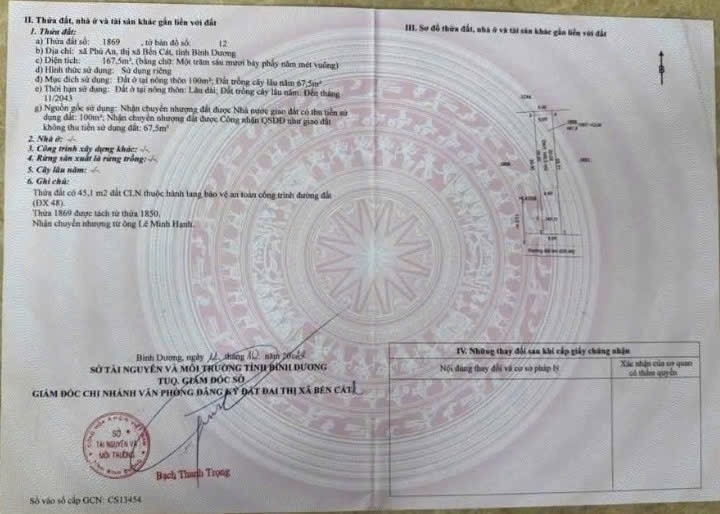 II. Thửa đất, nhà ở và tài sản khác gắn liền với đất
1. Thửa đất:
a) Thửa đất số: 1869 , tờ bản đồ số: 12
b) Địa chỉ: xã Phú An, thị xã Bến Cát, tỉnh Bình Dương
c) Diện tích: 167,5m², (bằng chữ: Một trăm sáu mươi bảy phẩy năm mét vuông)
d) Hình thức sử dụng: Sử dụng riêng
đ) Mục đích sử dụng: Đất ở tại nông thôn 100m²; Đất trồng cây lâu năm 67,5m²
e) Thời hạn sử dụng: Đất ở tại nông thôn: Lâu dài; Đất trồng cây lâu năm: Đến tháng
11/2043
g) Nguồn gốc sử dụng: Nhận chuyển nhượng đất được Nhà nước giao đất có thu tiền sử
dụng đất: 100m²; Nhận chuyển nhượng đất được Công nhận QSDĐ như giao đất
không thu tiền sử dụng đất: 67,5m²
2. Nhà ở: -/-
3. Công trình xây dựng khác: -/-
4. Rừng sản xuất là rừng trồng: -/-
5. Cây lâu năm: -/-
6. Ghi chú:
Thửa đất có 45,1 m2 đất CLN thuộc hành lang bảo vệ an toàn công trình đường đất
(ĐX 48).
Thửa 1869 được tách từ thửa 1850.
Nhận chuyển nhượng từ ông Lê Minh Hạnh.
Bình Dương, ngày tháng năm
SỞ TÀI NGUYÊN VÀ MÔI TRƯỜNG TỈNH BÌNH DƯƠNG
TUQ. GIÁM ĐỐC SỞ
GIÁM ĐỐC CHI NHÁNH VĂN PHÒNG ĐĂNG KÝ ĐẤT ĐAI THỊ XÃ BẾN CÁT
SỞ
TÀI NGUYÊN VÀ
MÔI TRƯỜNG
Bạch Thanh Trọng
Số vào sổ cấp GCN: CS13454
III. Sơ đồ thửa đất, nhà ở và tài sản khác gắn liền với đất
B
IV. Những thay đổi sau khi cấp giấy chứng nhận
Nội dung thay đổi và cơ sở pháp lý
Xác nhận của cơ quan
có thẩm quyền